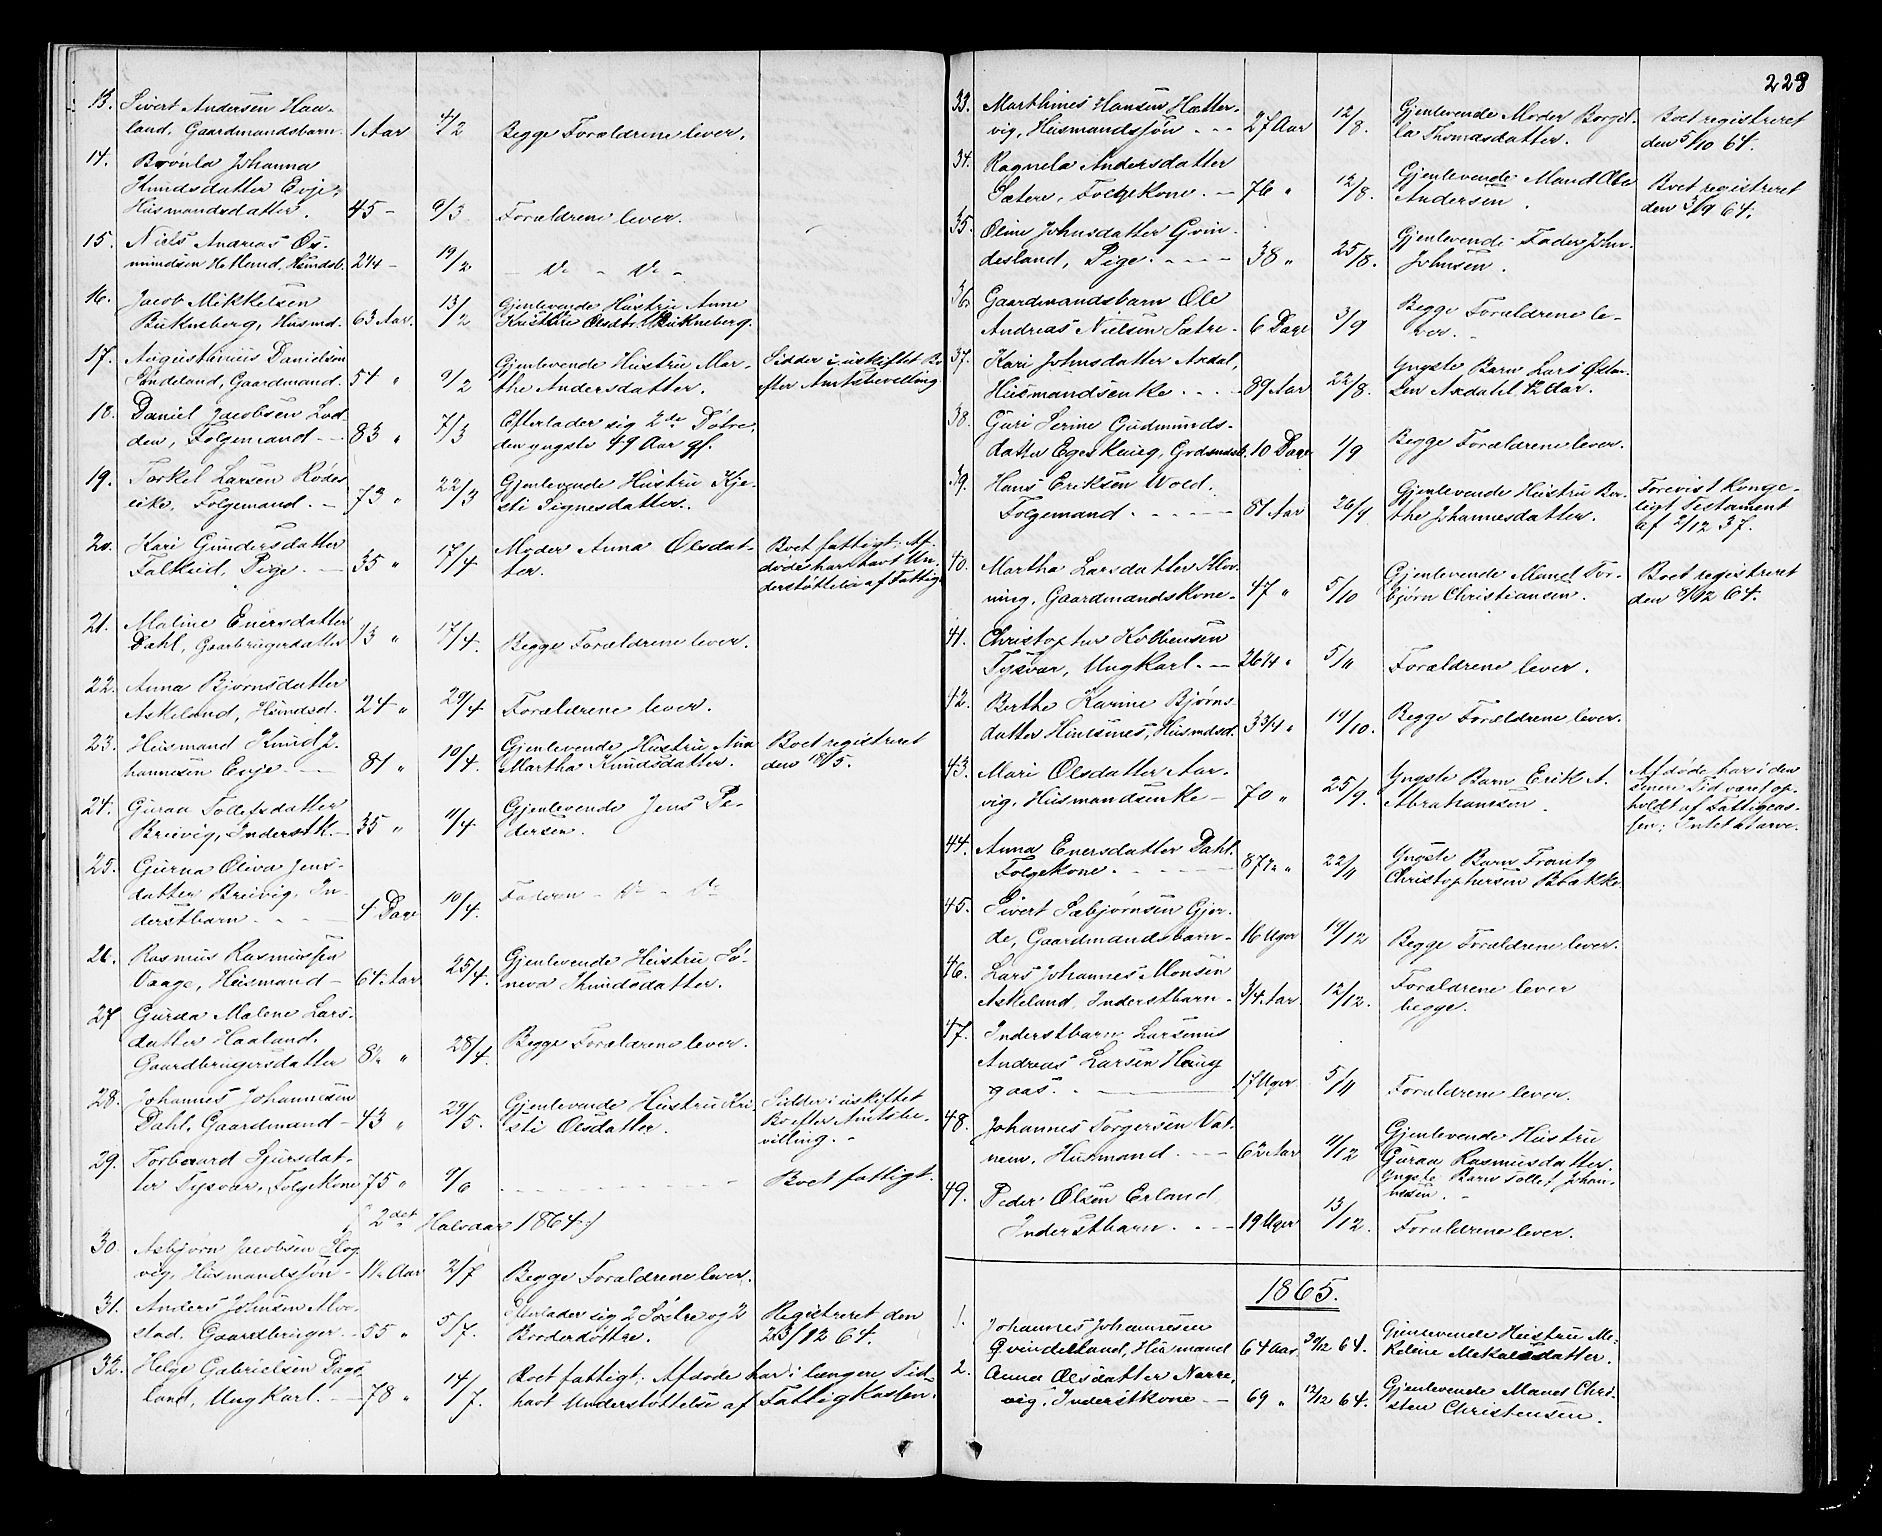 13. Sivert Andersen Haa-
land, Gaardmandsbarn. 1 Aar 4/2 Begge Forældrene lever.
14. Brønla Johanna
Knudsdatter Evje,
Husmandsdatter. 45 - 6/3 Forældrene lever.
15. Niels Andreas Os-
mundsen Hetland, Husmdsb. 2 1/4 - 19/2 - Do - Do -
16. Jacob Mikkelsen
Bukneberg, Husmd. 63 Aar. 13/2 Gjenlevende Hustru Anne
Kristine Olsdtr. Bukneberg.
17. Augustinius Danielsen
Søndeland, Gaardmand. 54 " 9/2 Gjenlevende Hustru Mar-
the Andersdatter. Sidder i uskiftet Bo
efter Amtsbevilling
18. Daniel Jacobsen Lod-
den, Folgemand - 83 " 7/3 Efterlader sig 2de Døtre,
den yngste 49 Aar gl.
19. Torkel Larsen Rødes-
eike, Folgemand. - 73 " 22/3 Gjenlevende Hustru Kje-
sti Signesdatter.
20. Kari Gundersdatter
Falkeid, Pige. - 35 " 17/4 Moder Anna Olsdat-
ter. Boet fattigt. Af-
døde har havt Un-
derstøttelse af Fattigk
21. Maline Enersdatter
Dahl, Gaardbrugersdatter 13 " 17/4. Begge Forældrene lever.
22. Anna Bjørnsdatter
Askeland, Husmdsd. 24 " 29/4 Forældrene lever.
23. Husmand Knud Jo-
hannesen Evje. - 81 " 10/4. Gjenlevende Hustru Ana
Martha Knudsdatter. Boet registreret
den 18/5.
24. Guraa Tolefsdatter
Breivig, Inderstk. - 35 " 11/4 Gjenlevende Jens Pe-
dersen.
25. Gurna Oliva Jens-
datter Breivig, In-
derstbarn. - - 4 Dage 10/4. Faderen - Do - Do
26. Rasmus Rasmussen
Vaage, Husmand - 64 Aar 25/4. Gjenlevende Hustru Sø-
neva Knudsdatter.
27 Gurda Malene Lars-
datter Haaland,
Gaardbrugersdatter 8 1/2 " 28/4. Begge Forældrene lever.
28. Johannes Johannesen
Dahl, Gaardmand - 43 " 29/5. Gjenlevende Hustru Kri-
sti Olsdatter. Sidder i uskiftet
Bo efter Amtsbe-
villing.
29. Torbeaard Sjursdat-
ter Tysvær, Folgekone 75 " 4/6 - - - - - - Boet fattigt.
2det Halvaar 1864
30. Asbjørn Jacobsen Slog-
vig, Husmandssøn - 1 1/2 Aar 2/7 Begge Forældrene lever.
31. Anders Johnsen Alve-
stad, Gaardbruger. - 55 " 5/7. Efterlader sig 2 Søstre og 2
Broderdøttre. Registreret den
23/12 64.
32. Helge Gabrielsen Dags-
land, Ungkarl. - 78 " 14/7. Boet fattigt; Afdøde har i længere Tid
havt Understøttelse af Fattigkassen.
223
33. Marthines Hansen Hatter-
vig, Husmandssøn - - - 27 Aar 12/8. Gjenlevende Moder Borgil-
la Thomasdatter. Boet registreret
den 5/10 64.
34. Ragnela Andersdatter
Sætere, Folgekone. - 76 " 12/8. Gjenlevende Mand Ole
Andersen. Boet registreret
den 3/9 64.
35. Oline Johnsdatter Gvin-
desland, Pige. - - - - 38 " 25/8. Gjenlevende Fader John
Johnsen.
36. Gaardmandsbarn Ole
Andreas Nielsen Sætre - 6 Dage 3/9 Begge Forældrene le-
ver.
37. Kari Johnsdatter Axdal,
Husmandsenke. - - - 89 Aar 22/8. Yngste Barn Lars Østen-
sen Axdahl, 42 Aar.
38. Guri Serine Gudmunds-
datter Egeskueg, Grdmdsb. 10 Dage 1/9 Begge Forældrene lever.
39. Hans Eriksen Wold,
Folgemand - - - - - 81 Aar 26/9. Gjenlevende Hustru Ber-
the Johannesdatter. Forevist konge-
ligt Testament
af 2/12 37.
40. Martha Larsdatter Slov-
ning, Gaardmandskone - 47 " 5/10 Gjenlevende Mand Tor-
bjørn Christiansen. Boet registreret
den 9/12 64.
41. Christopher Kolbensen
Tysvær, Ungkarl. - 26 1/4 " 5/11 Forældrene lever.
42. Berthe Karine Bjørns-
datter Hinesnes, Husmdsd. 3 3/4 " 14/10. Begge Forældrene lever.
43. Mari Olsdatter Aar-
vig, Husmandsenke - 70 " 25/9. Yngste Barn Erik A.
Abrahamsen. Afdøde har i den
senere Tid været op-
holdt af Fattigcas-
sen; Intet at arve.
44. Anna Enersdatter Dahl,
Folgekone. - - - - - 87 1/2 " 22/11 Yngste Barn Frants
Christophersen Bække
45. Sivert Sæbjørnsen Gjer-
de, Gaardmandsbarn - 16 Uger 19/12 Begge Forældrene lever.
46. Lars Johannes Monsen
Askeland, Inderstbarn - 3/4 Aar 12/12. Forældrene lever
begge.
47. Inderstbarn Larsenus
Andreas Larsen Haug-
gaas. - 17 Uger 5/11 Forældrene lever.
48. Johannes Torgersen Vat-
nem, Husmand. - - - 62 Aar 11/12 Gjenlevende Hustru
Guraa Rasmusdatter.
Yngste Barn Tollef Johan-
nesen.
49. Peder Olsen Erland,
Inderstbarn. - - - 19 Uger 13/12. Forældrene lever.
1865.
1. Johannes Johannesen
Qvindesland, Husmand 64 Aar 30/12 64. Gjenlevende Hustru Me-
keline Mekalsdatter.
2. Anna Olsdatter Narre-
vig, Inderstkone - - 69 " 12/12 64. Gjenlevende Mand Chri-
sten Christensen.